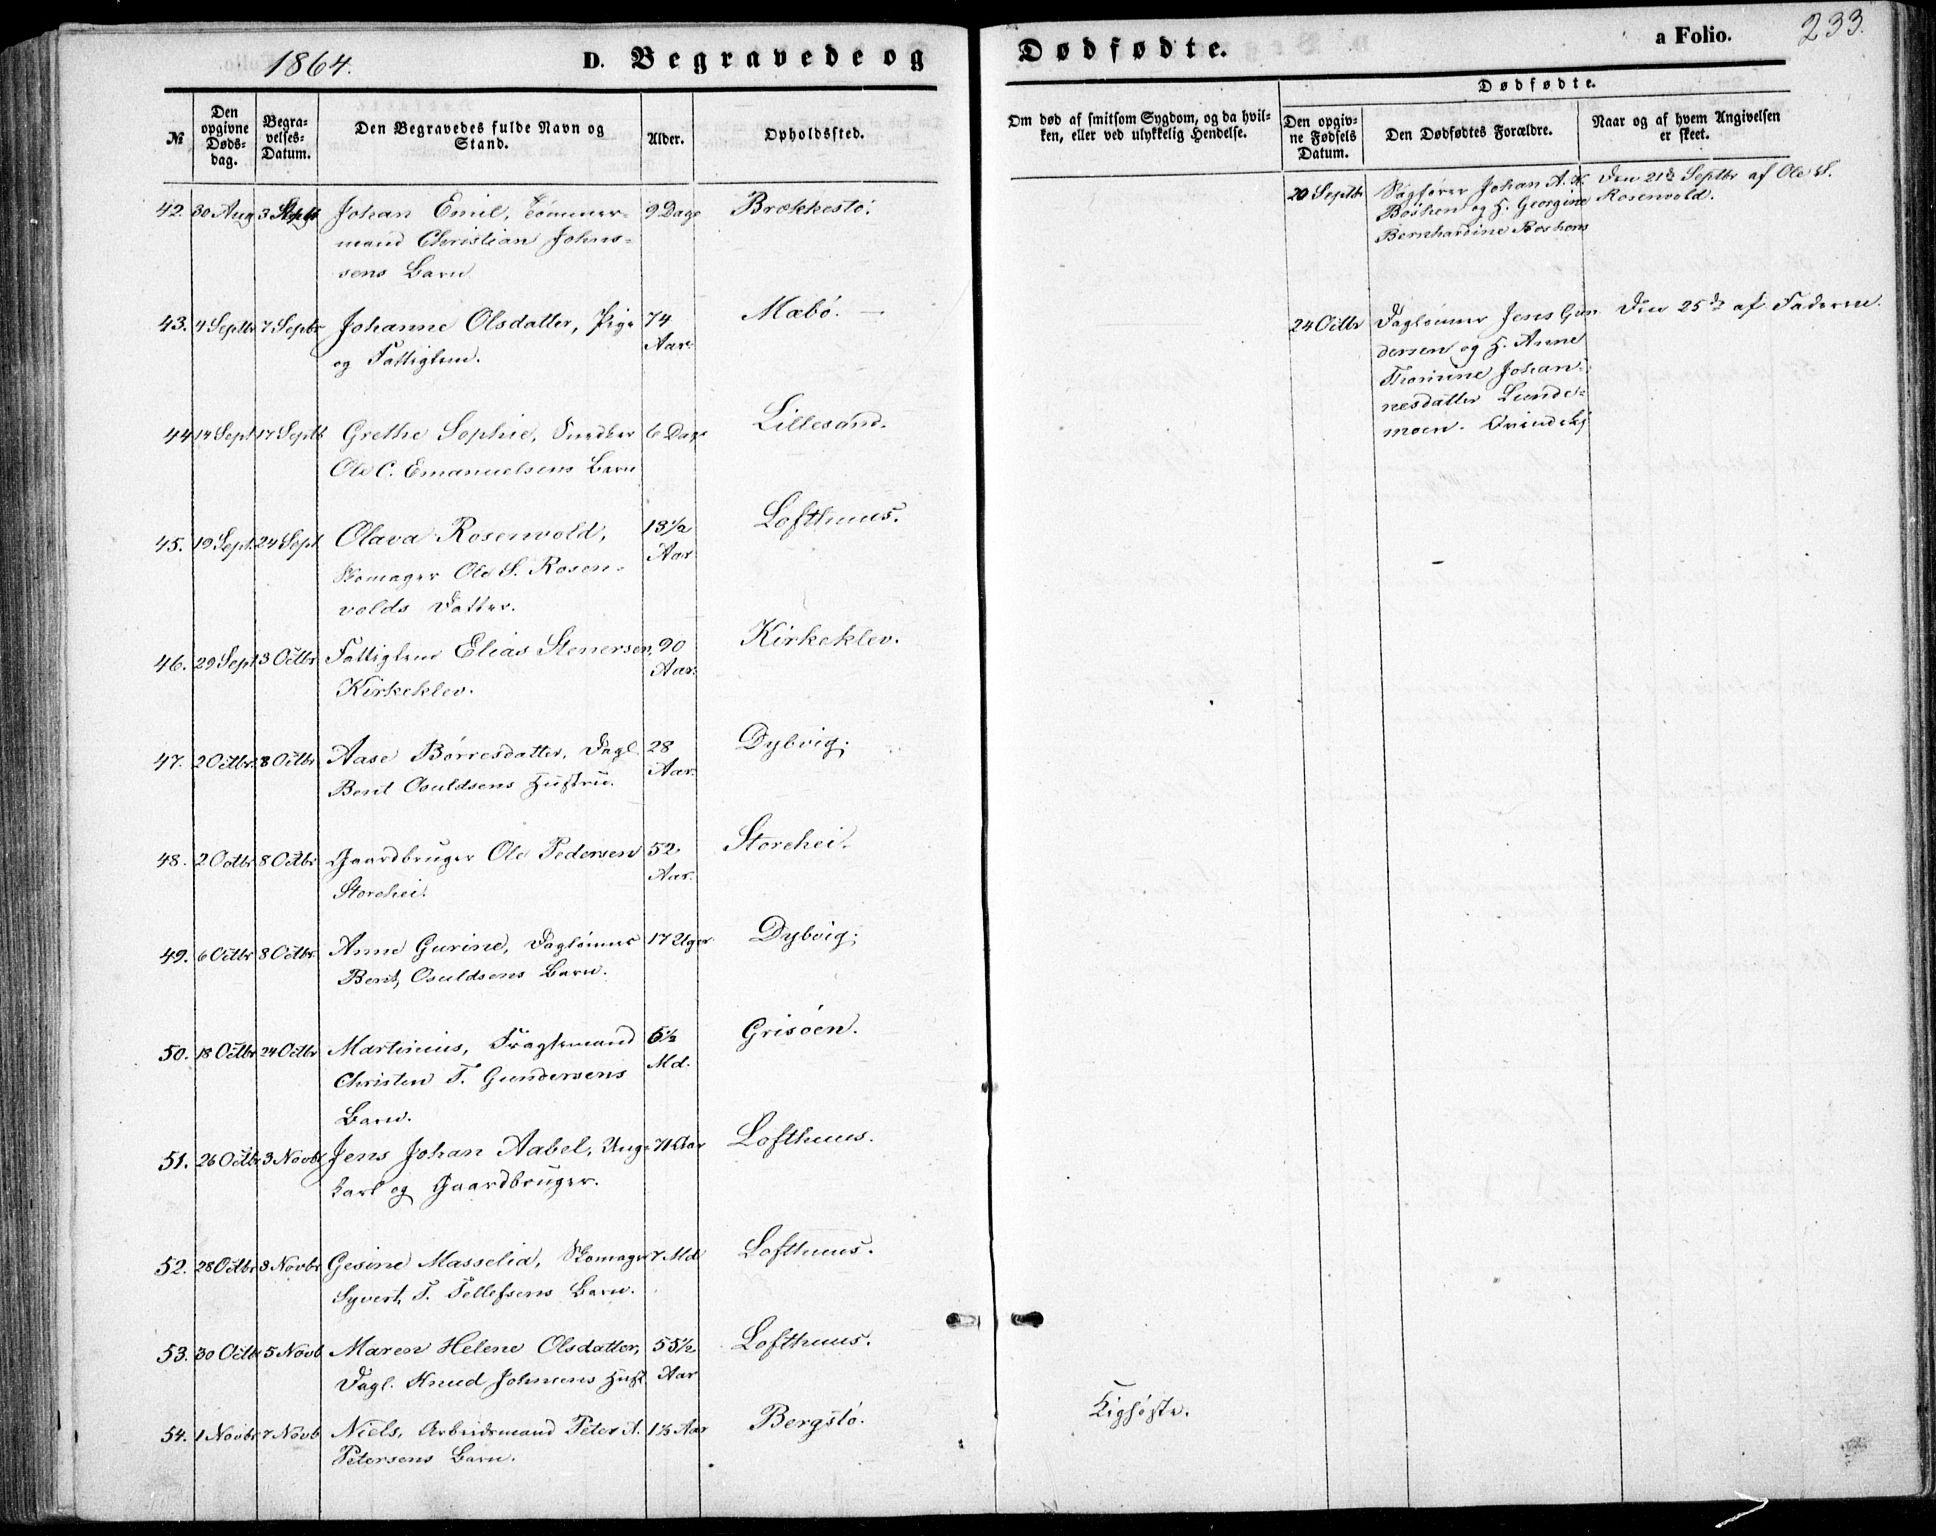 1864.
D. Begravede og
Dødfødte.
a Folio.
233.
№
Den opgivne Døds-dag.
Begra-velses-Datum.
Den Begravedes fulde Navn og Stand.
Alder.
Opholdssted.
Om død af smitsom Sygdom, og da hvil-
ken, eller ved ulykkelig Hendelse.
Dødfødte.
Den opgiv-ne Fødsels Datum.
Den Dødfødtes Forældre.
Naar og af hvem Angivelsen er skeet.
42. 30 Aug 3 Septbr Johan Emil, Tømmer- 9 Dage Brækkestø.
mand Christian Johns-
sens Barn
43. 4 Septbr 7 Septbr Johanne Olsdatter, Pige 74 Mæbø. —
og Fattiglem. Aar.
44 14 Sept 17 Septb Grethe Sophie, Snedker 6 Dage Lillesand.
Ole C. Emanuelsens Barn
45. 19 Sept. 24 Sept Olava Rosenvold, 13½ Lofthuus.
Skomager Ole S. Rosen- Aar
volds Datter.
46. 29 Sept 3 Octbr Fattiglem Elias Stenersen, 90 Kirkeklev.
Kirkeklev. Aar.
47. 2 Octbr. 8 Octbr. Aase Børresdatter, Dagl. 28 Dybvig.
Berit Osuldsens Hustru. Aar.
48. 2 Octbr 8 Octbr Gaardbruger Ole Pedersen 52 Storehei.
Storehei. Aar.
49. 6 Octbr 8 Octbr. Anne Gurine, Dagleiner 17 Uger Dybvig.
Berit Osuldsens Barn.
50. 18 Octbr 24 Octbr Martinius, Fragtemand 6½ Grisøen.
Christen T. Gundersens Md.
Barn.
51. 26 Octbr 3 Novbr Jens Johan Aabel, Unge 71 Aar Lofthuus.
karl og Gaardbruger.
52. 28 Octbr 3 Novbr Gesine Masselia, Skomager 7 Md Lofthuus.
Syvert T. Tellefsens Barn.
53. 30 Octbr 5 Novb Maren Helene Olsdatter, 55½ Lofthuus.
Dagl. Knud Johnsens Hust. Aar
54. 1 Novbr 7 Novb Niels, Arbeidsmand Peter A. 1⅓ Aar Bergstø. Kighoste.
Petersens Barn.
20 Septbr Sagfører Johan A. K. Den 21de Septbr af Ole S.
Boshen og H. Georgine Rosenvold.
Bernhardine Boshens
24 Octbr Dagleiner Jens Gun Den 25de af Faderen.
dersen og H. Anne
Thorinne Johan-
nesdatter Lunde-
moen.